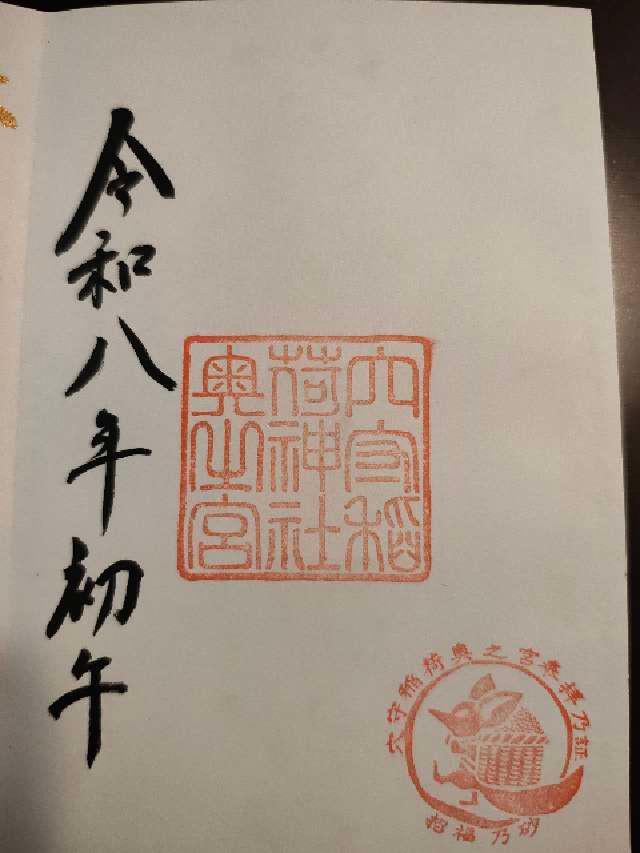 穴守稲
荷神社
奥之宮
令和八年初午
穴守稲荷奥之宮奉拝乃証
招福乃砂